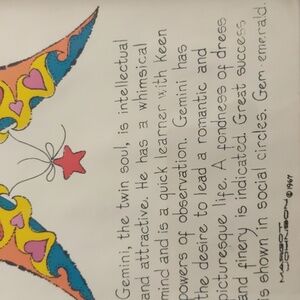 Gemini, the twin soul, is intellectual
and attractive. He has a whimsical
mind and is a quick learner with keen
powers of observation. Gemini has
the desire to lead a romantic and
picturesque life. A fondness of dress
and finery is indicated. Great success
is shown in social circles. Gem: emerald.
MARGOT
JOHNSON © 1967